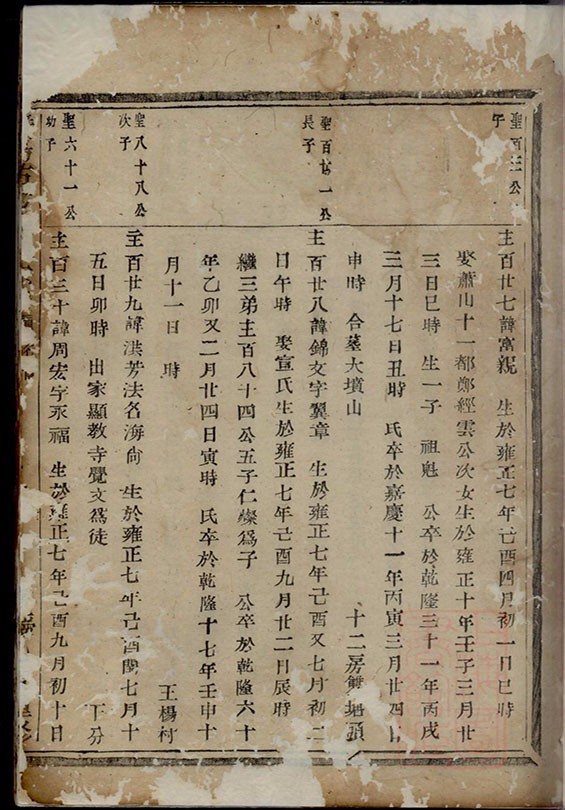 聖百三公
子
主百廿七諱富親 生於雍正七年己酉四月初一日巳時
娶蕭山十一都鄭經雲公次女生於雍正十年壬子三月廿
三日巳時 生一子 祖魁 公卒於乾隆三十一年丙戌
三月十七日丑時 氏卒於嘉慶十一年丙寅三月廿四日
申時 合墓大墳山 十二房雙塘頭
聖百廿一公
長子
主百廿八諱錦文字翼章 生於雍正七年己酉又七月初二
日午時 娶宣氏生於雍正七年己酉九月廿二日辰時
繼三弟主百八十四公五子仁燦爲子 公卒於乾隆六十
年乙卯又二月廿四日寅時 氏卒於乾隆十七年壬申十
月十一日 時 王楊村
聖八十八公
次子
主百廿九諱洪芳法名海尙 生於雍正七年己酉閏七月十
五日卯時 出家顯教寺覺文爲徒 下分
聖六十一公
幼子
主百三十諱周宏字永福 生於雍正七年己酉九月初十日